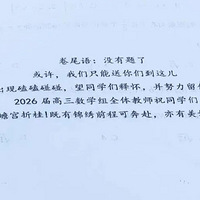 卷尾语：没有题了
或许，我们只能送你们到这儿
出现磕磕碰碰，望同学们释怀，并努力留
2026 届高三数学组全体教师祝同学们
蟾宫折桂!既有锦绣前程可奔赴，亦有美